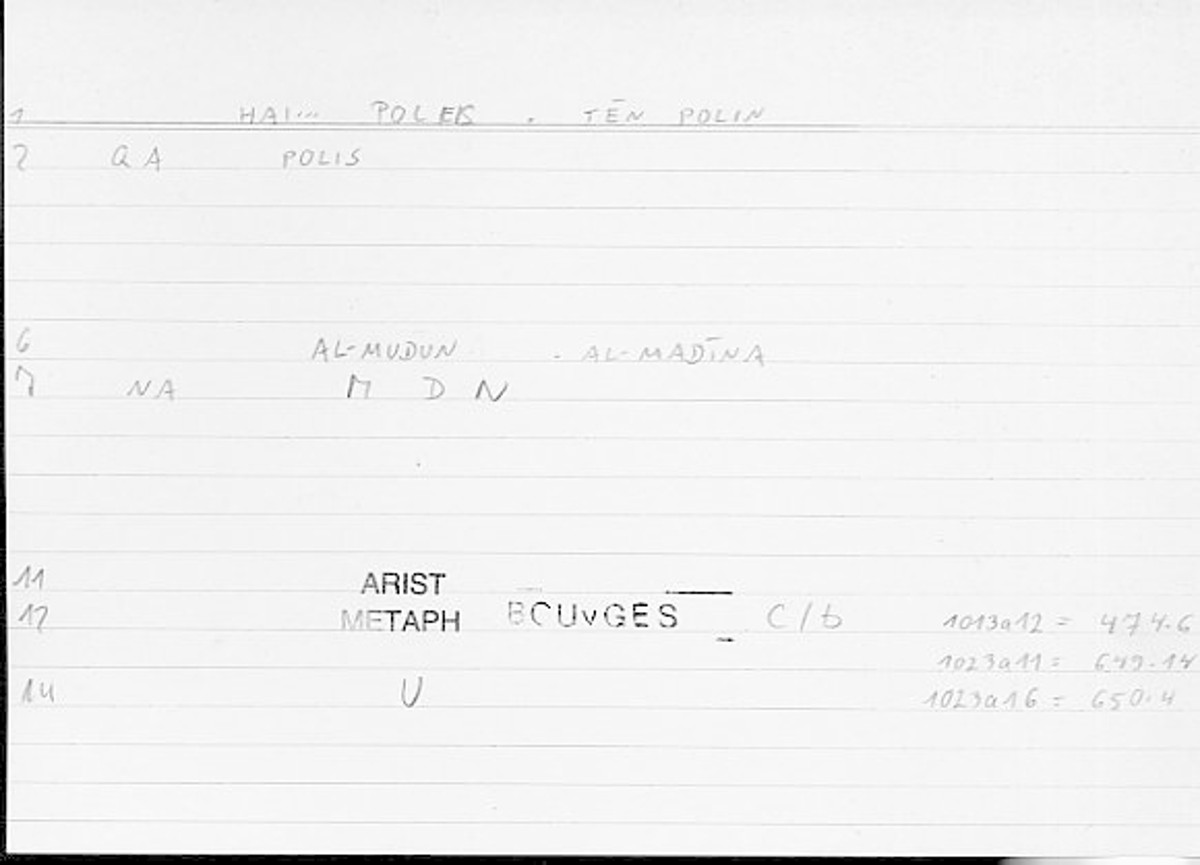 1 HAI... POLEIS . TĒN POLIN
2 QA POLIS
6 AL-MUDUN . AL-MADĪNA
7 NA M D N
11 ARIST
12 METAPH BOUYGES C/b 1013a12 = 474.6
1023a11 = 649.14
14 U 1023a16 = 650.4